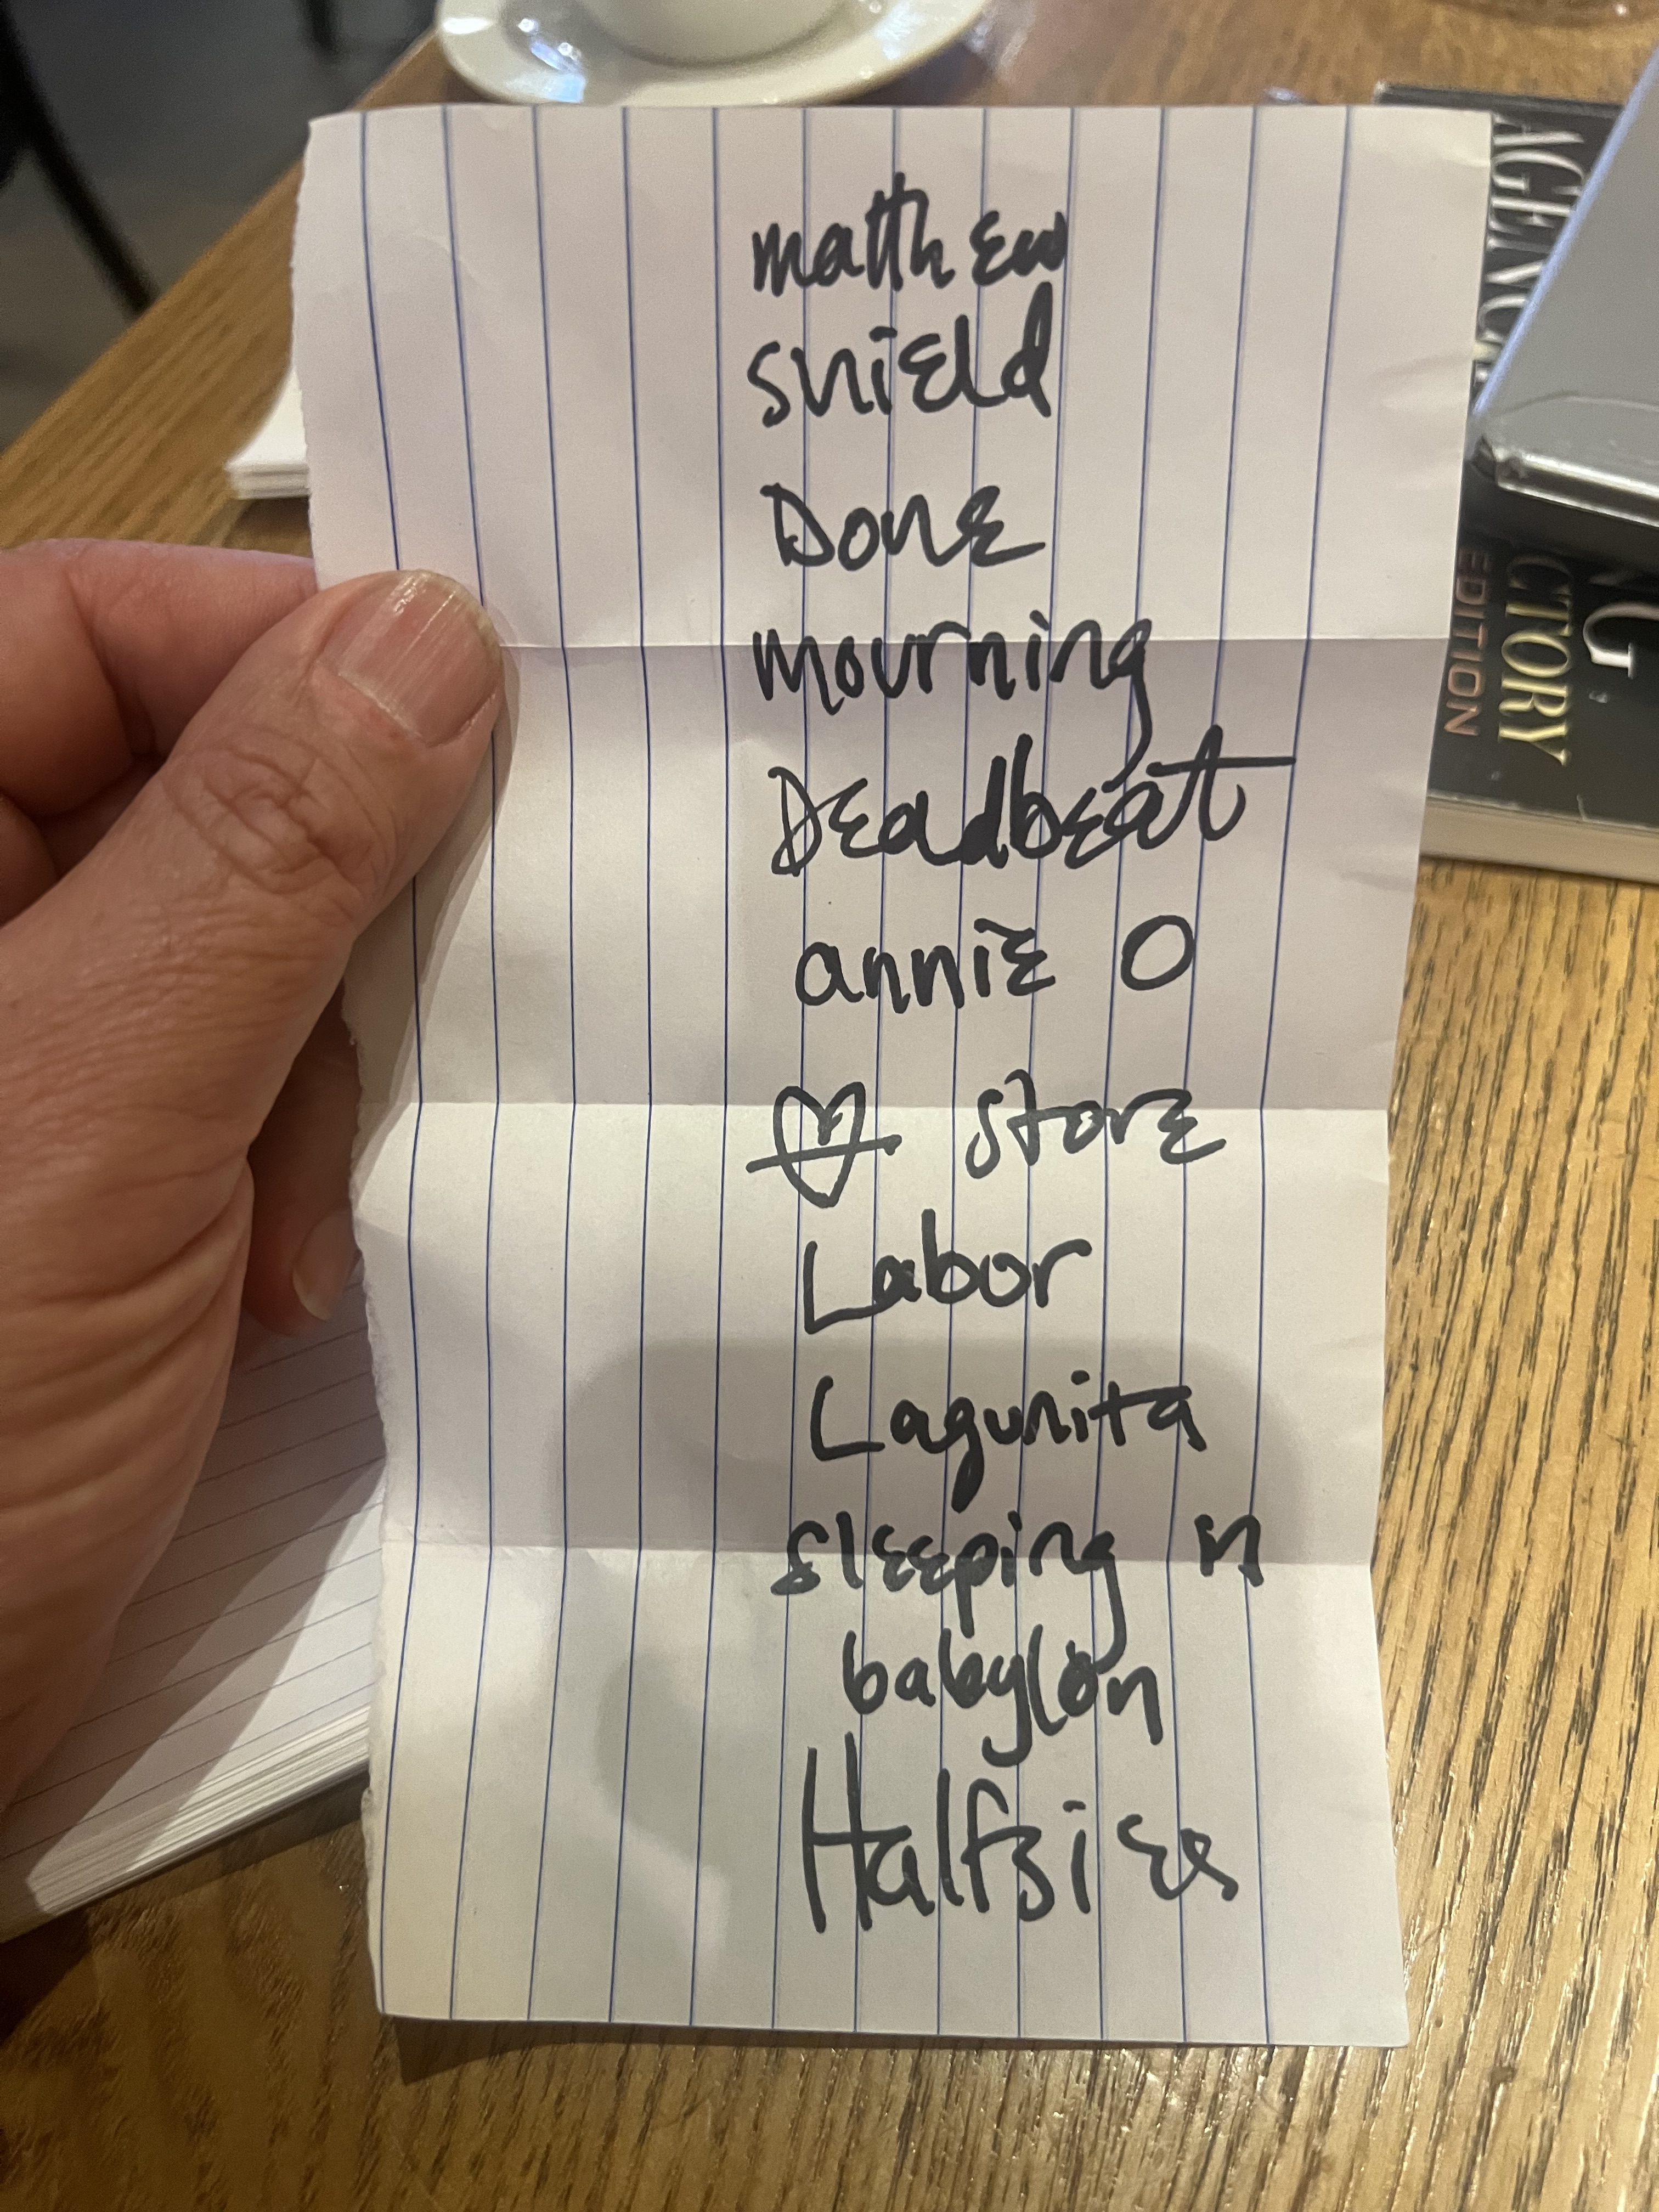 matthew
shield
Done
mourning
Deadbeat
annie O
store
Labor
Lagunita
sleeping n
babylon
Halfsies
AGENCY
CTORY
EDITION